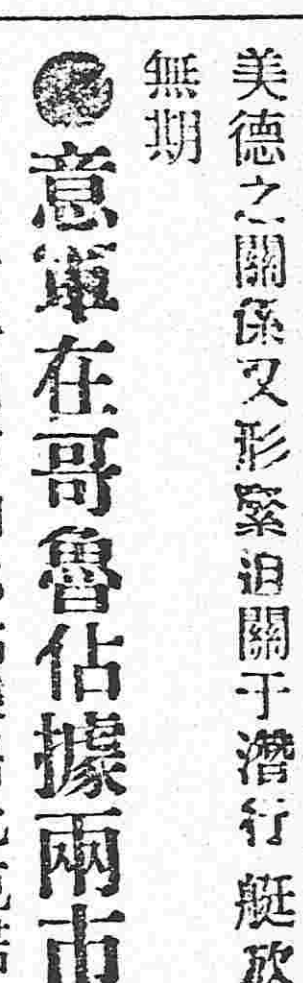 美德之關係又形緊迫關于潛行艇砍
無期
意軍在哥魯佔據兩市